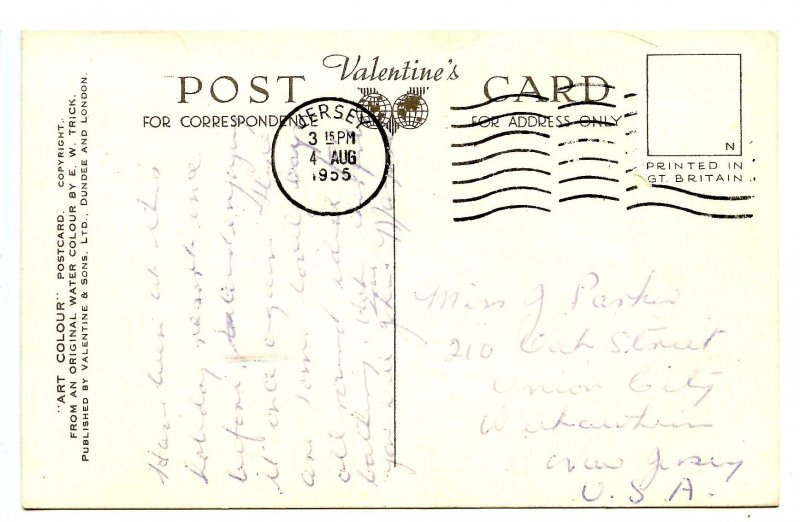 Valentine's
POST CARD
FOR CORRESPONDENCE FOR ADDRESS ONLY
JERSEY
3 15 PM
4 AUG
1955
N
PRINTED IN
GT. BRITAIN
"ART COLOUR" POSTCARD. COPYRIGHT.
FROM AN ORIGINAL WATER COLOUR BY E. W. TRICK.
PUBLISHED BY VALENTINE & SONS, LTD., DUNDEE AND LONDON.
Have been at this
holiday resort once
before,
it once again
are some lovely bays
all round
bathing.
you are
Miss J Parker
210 Oak Street
Union City
New Jersey
U.S.A.